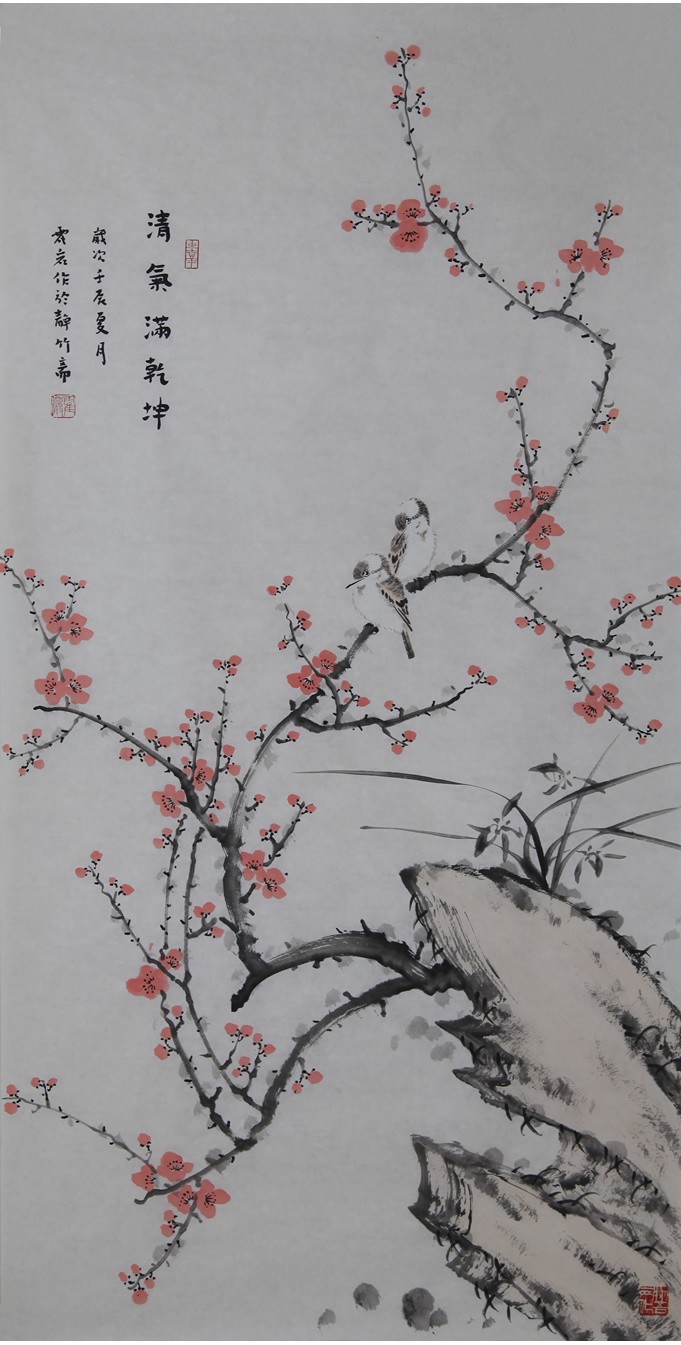 清氣滿乾坤
歲次壬辰夏月
作於靜竹齋